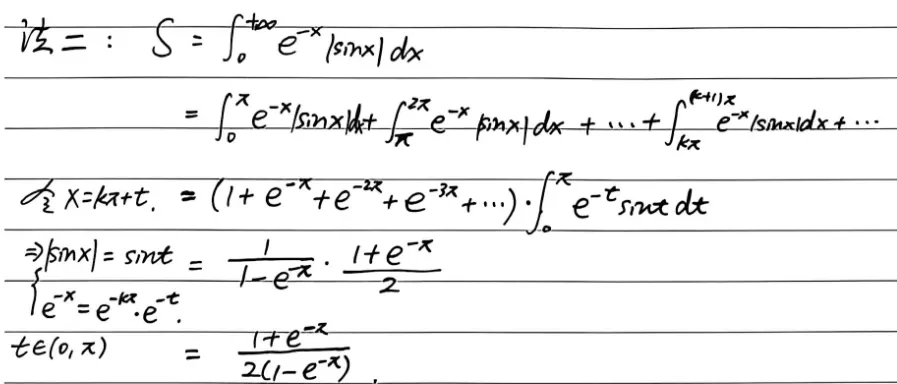 法二: S = ∫₀^{+∞} e^{-x} |sinx| dx
= ∫₀^{π} e^{-x}|sinx|dx + ∫_{π}^{2π} e^{-x} |sinx| dx + ··· + ∫_{kπ}^{(k+1)π} e^{-x}|sinx|dx + ···
令 x=kπ+t. = (1+e^{-π}+e^{-2π}+e^{-3π}+···)·∫₀^{π} e^{-t} sint dt
⇒ { |sinx| = sint = \frac{1}{1-e^{-π}} · \frac{1+e^{-π}}{2}
e^{-x}=e^{-kπ}·e^{-t}.
t∈(0,π) = \frac{1+e^{-π}}{2(1-e^{-π})}.